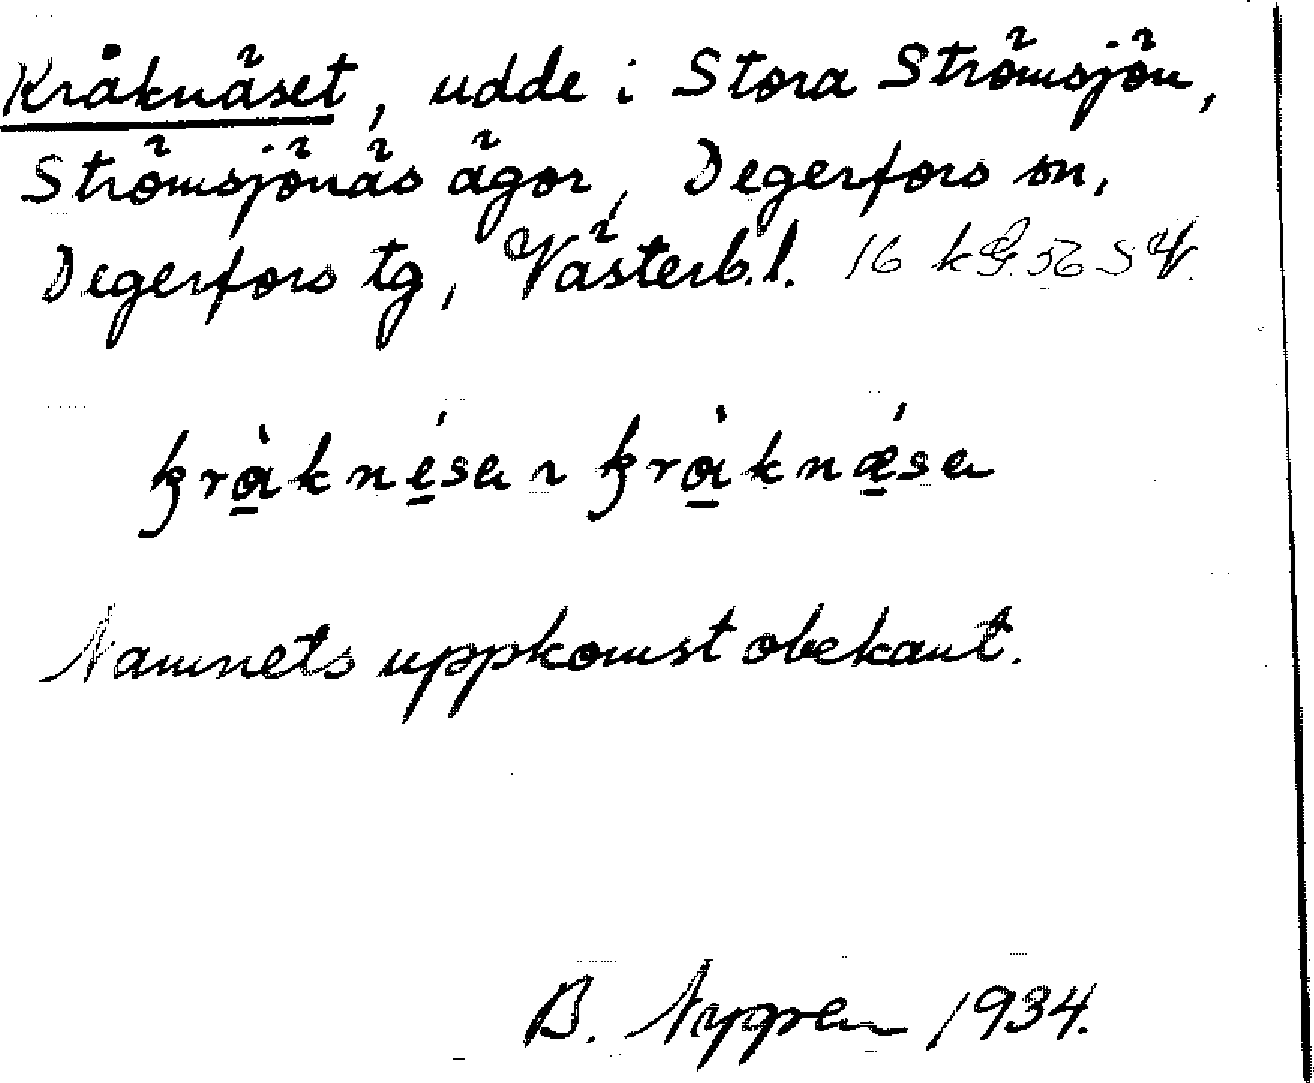 Kråknäset, udde i Stora Strömsjön,
Strömsjönäs ägor, Degerfors sn,
Degerfors tg, Västerb.l. 16 kG.56 SV.
kråknesa ~ kråknæsa
Namnets uppkomst obekant.
B. Nygren 1934.